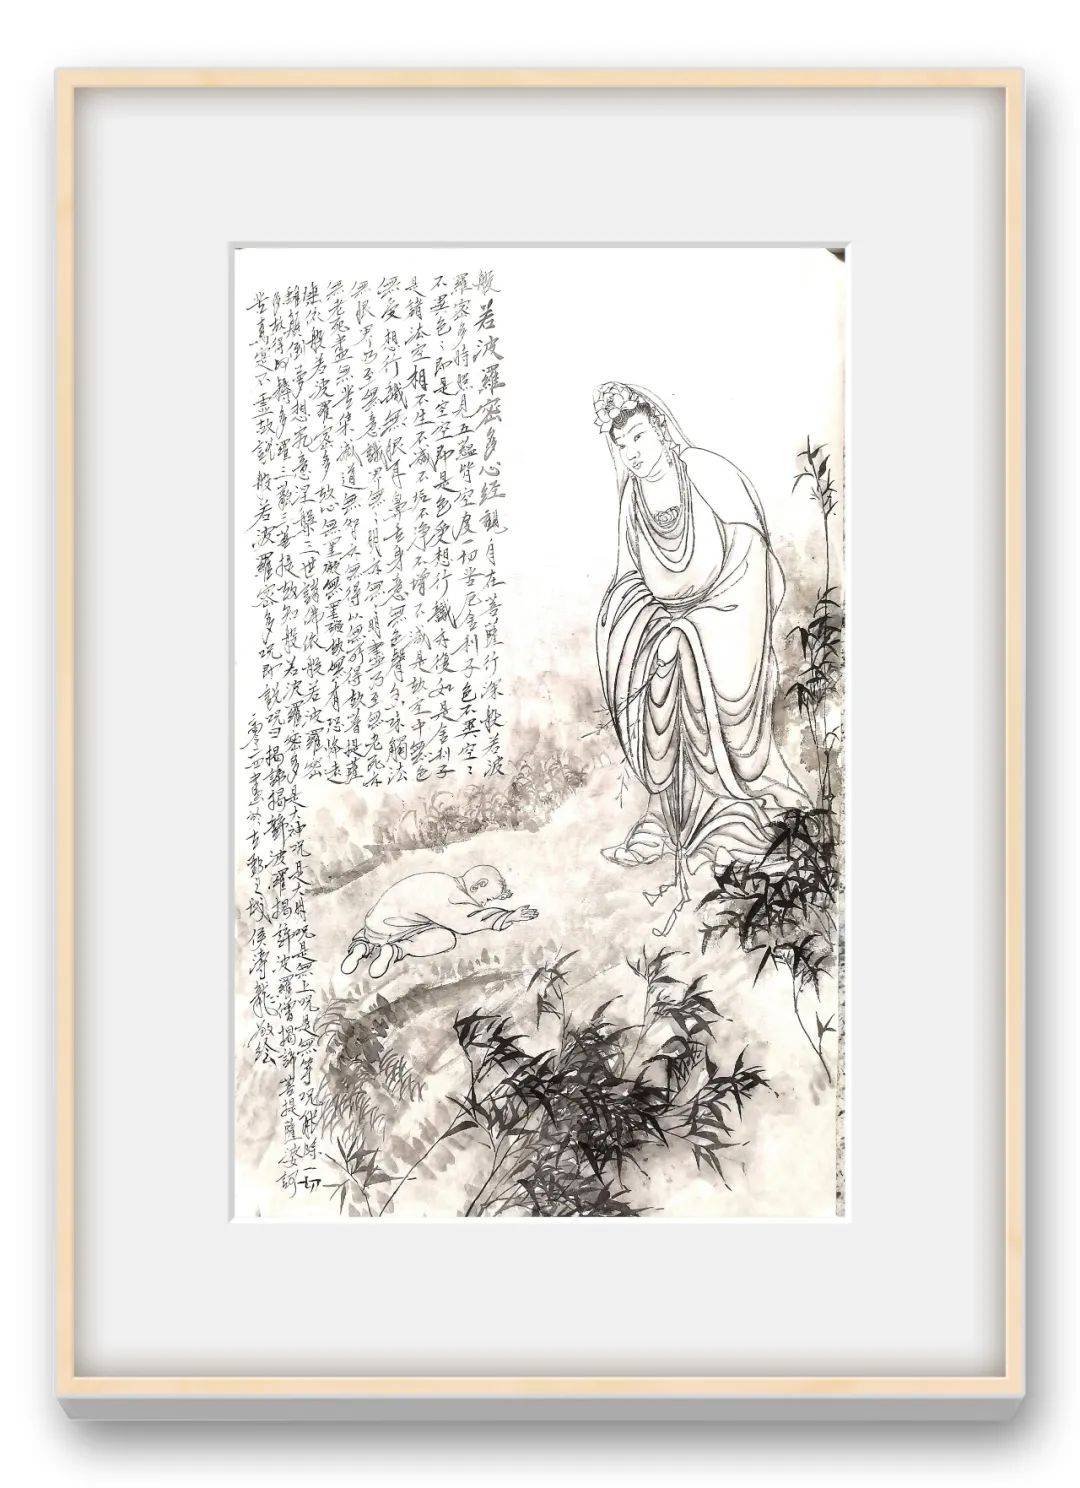 般若波羅密多心經觀自在菩薩行深般若波
羅密多時照見五蘊皆空度一切苦厄舍利子色不異空〻
不異色〻即是空空即是色受想行識亦復如是舍利子
是諸法空相不生不滅不垢不淨不增不減是故空中無色
無受想行識無眼耳鼻舌身意無色聲香味觸法
無眼界乃至無意識界無〻明亦無〻明盡乃至無老死亦
無老死盡無苦集滅道無智亦無得以無所得故菩提薩
埵依般若波羅密多故心無罣礙無罣礙故無有恐怖遠
離顛倒夢想究意涅槃三世諸佛依般若波羅密
多故得阿耨多羅三藐三菩提故知般若波羅密多是大神咒是大明咒是無上咒是無等咒能除一切
苦真實不虛故說般若波羅密多咒即說咒曰揭諦揭諦波羅揭諦波羅僧揭諦菩提薩婆訶
侯濤龍敬絵